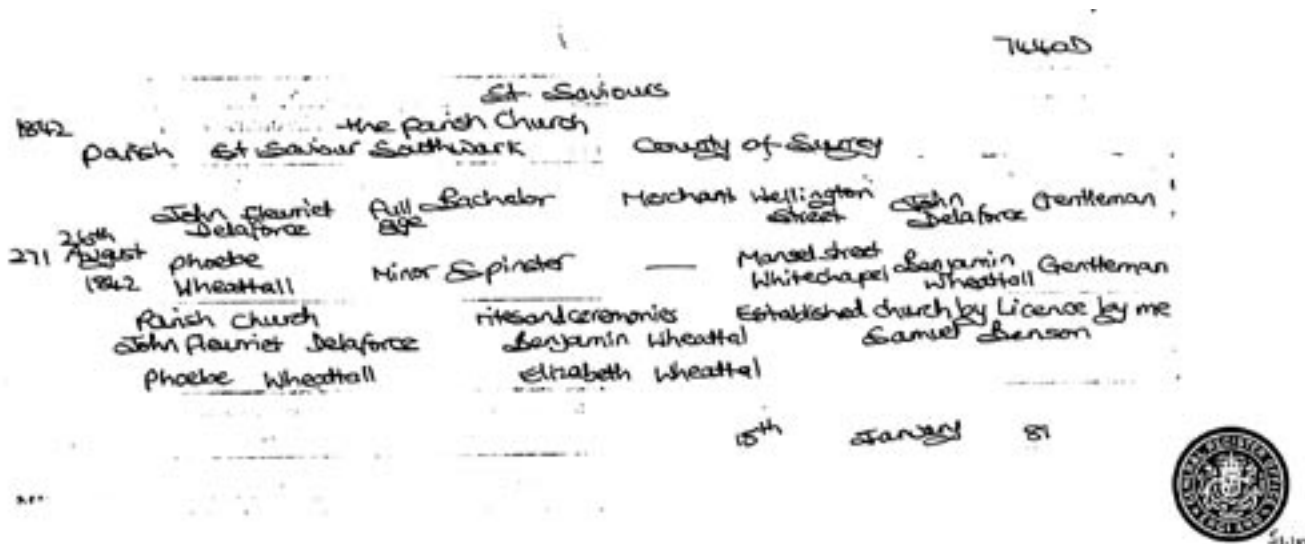 7440D
St. Saviours
1842 the parish Church
parish St Saviour Southwark County of Surrey
John Fleuriet Delaforce Full age Bachelor Merchant Wellington Street John Delaforce Gentleman
271 26th August 1842 Phoebe Wheattall Minor Spinster — Mansel street Whitechapel Benjamin Wheattall Gentleman
Parish Church rites and ceremonies Established church by Licence by me
John Fleuriet Delaforce Benjamin Wheattal Samuel Benson
Phoebe Wheattall Elizabeth Wheattal
15th January 81
GENERAL REGISTER OFFICE ENGLAND